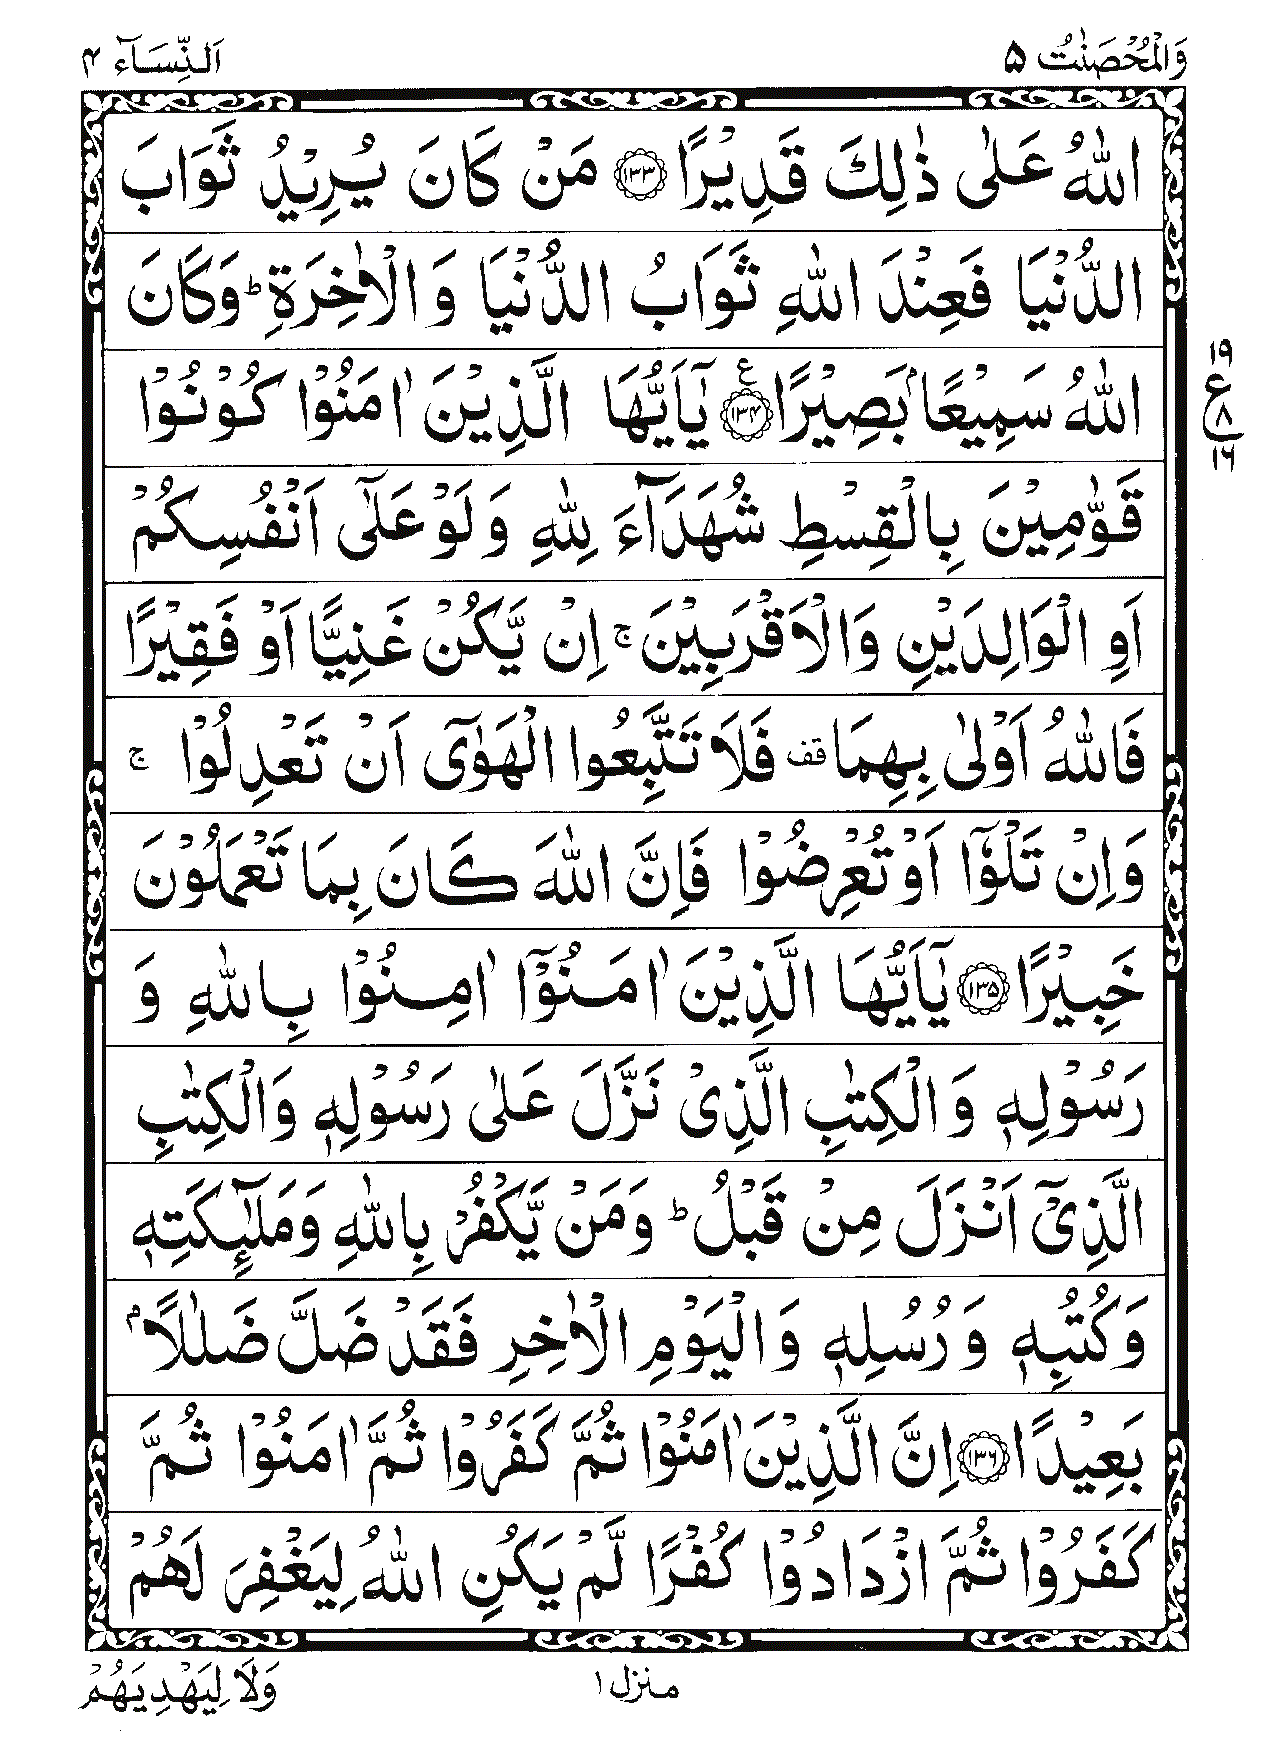 وَالْمُحْصَنٰتُ ۵ اَلنِّسَآء ۴
اللّٰهُ عَلٰى ذٰلِكَ قَدِيْرًا ﴿۱۳۳﴾ مَنْ كَانَ يُرِيْدُ ثَوَابَ
الدُّنْيَا فَعِنْدَ اللّٰهِ ثَوَابُ الدُّنْيَا وَ الْاٰخِرَةِ ؕ وَكَانَ
اللّٰهُ سَمِيْعًاۢ بَصِيْرًا ﴿۱۳۴﴾ ع يٰۤاَيُّهَا الَّذِيْنَ اٰمَنُوْا كُوْنُوْا
۱۹
ع
۸
۱۶
قَوّٰمِيْنَ بِالْقِسْطِ شُهَدَآءَ لِلّٰهِ وَلَوْ عَلٰۤى اَنْفُسِكُمْ
اَوِ الْوَالِدَيْنِ وَالْاَقْرَبِيْنَ ۚ اِنْ يَّكُنْ غَنِيًّا اَوْ فَقِيْرًا
فَاللّٰهُ اَوْلٰى بِهِمَا قف فَلَا تَتَّبِعُوا الْهَوٰۤى اَنْ تَعْدِلُوْا ۚ
وَاِنْ تَلْوٗۤا اَوْ تُعْرِضُوْا فَاِنَّ اللّٰهَ كَانَ بِمَا تَعْمَلُوْنَ
خَبِيْرًا ﴿۱۳۵﴾ يٰۤاَيُّهَا الَّذِيْنَ اٰمَنُوْۤا اٰمِنُوْا بِاللّٰهِ وَ
رَسُوْلِهٖ وَ الْكِتٰبِ الَّذِىْ نَزَّلَ عَلٰى رَسُوْلِهٖ وَالْكِتٰبِ
الَّذِىْۤ اَنْزَلَ مِنْ قَبْلُ ؕ وَمَنْ يَّكْفُرْ بِاللّٰهِ وَمَلٰٓئِكَتِهٖ
وَكُتُبِهٖ وَ رُسُلِهٖ وَ الْيَوْمِ الْاٰخِرِ فَقَدْ ضَلَّ ضَلٰلًاۢ
بَعِيْدًا ﴿۱۳۶﴾ اِنَّ الَّذِيْنَ اٰمَنُوْا ثُمَّ كَفَرُوْا ثُمَّ اٰمَنُوْا ثُمَّ
كَفَرُوْا ثُمَّ ازْدَادُوْا كُفْرًا لَّمْ يَكُنِ اللّٰهُ لِيَغْفِرَ لَهُمْ
منزل ۱
وَلَا لِيَهْدِيَهُمْ